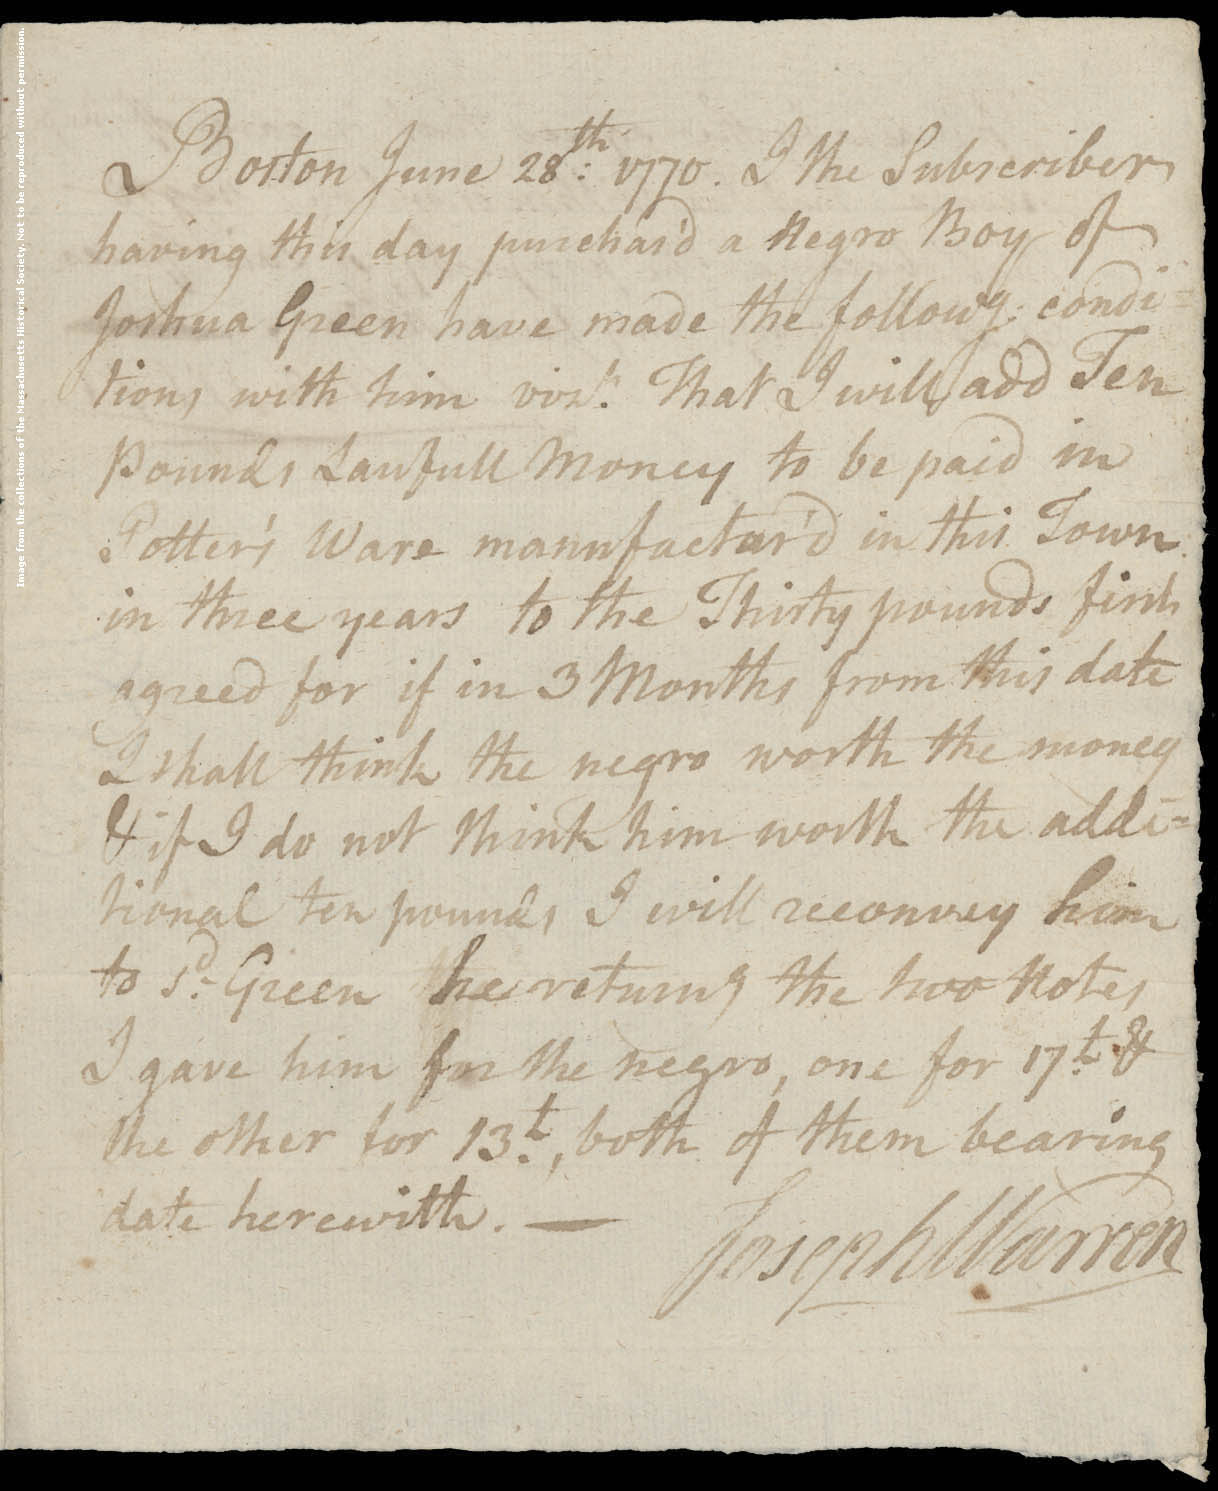 Image from the collections of the Massachusetts Historical Society. Not to be reproduced without permission.
Boston June 28th: 1770. I the Subscriber
having this day purchas'd a Negro Boy of
Joshua Green have made the followg. condi=
tions with him vizt. That I will add Ten
Pounds Lawfull Money to be paid in
Potter's Ware manufactur'd in this Town
in three years to the Thirty pounds first
agreed for if in 3 Months from this date
I shall think the negro worth the money
& if I do not think him worth the addi=
tional ten pounds I will reconvey him
to sd. Green he returng the two Notes
I gave him for the negro, one for 17£. &
the other for 13£., both of them bearing
date herewith. —
Joseph Warren